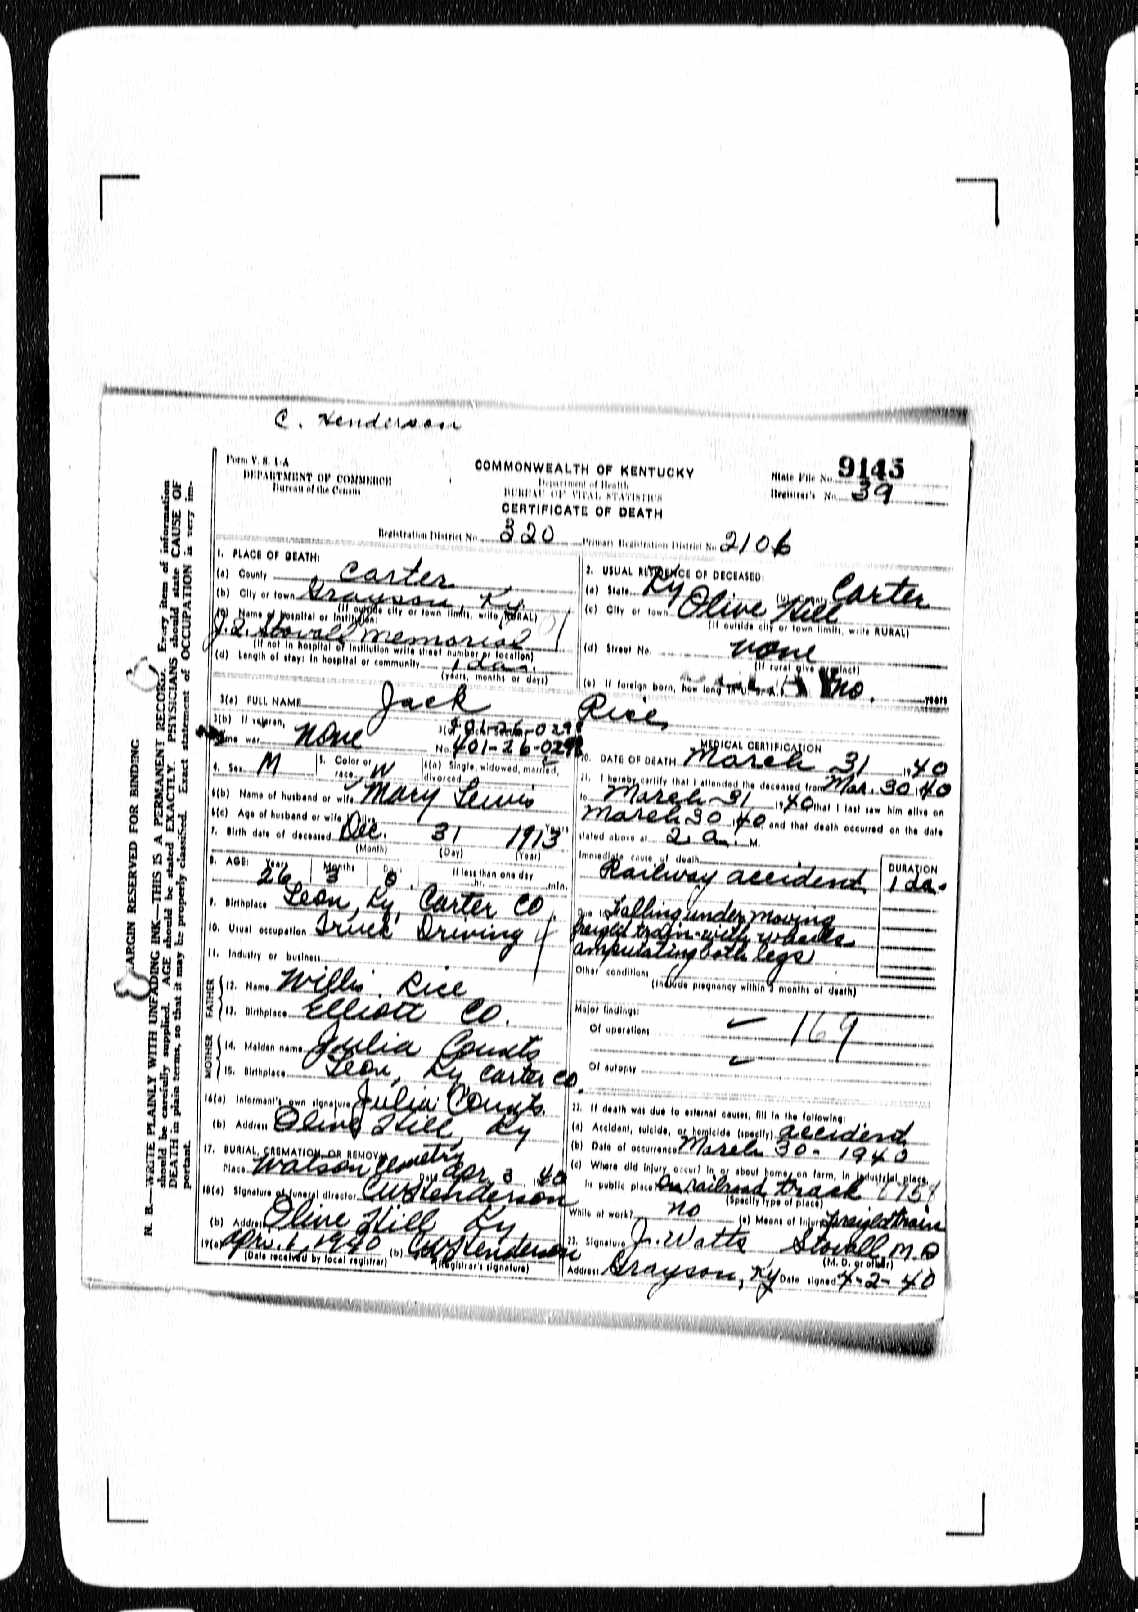 C. Henderson
Form V. S. 1-A
DEPARTMENT OF COMMERCE
Bureau of the Census
COMMONWEALTH OF KENTUCKY
Department of Health
BUREAU OF VITAL STATISTICS
CERTIFICATE OF DEATH
State File No. 9145
Registrar's No. 39
Registration District No. 320 Primary Registration District No. 2106
1. PLACE OF DEATH:
(a) County Carter
(b) City or town Grayson, Ky
(If outside city or town limits, write RURAL)
(c) Name of hospital or institution:
J. Q. Stovall Memorial
(If not in hospital or institution write street number or location)
(d) Length of stay: In hospital or community 1 da.
(years, months or days)
2. USUAL RESIDENCE OF DECEASED:
(a) State Ky (b) County Carter
(c) City or town Olive Hill
(If outside city or town limits, write RURAL)
(d) Street No. none
(If rural give precinct)
(e) If foreign born, how long in U. S. A.? no. years
3(a) FULL NAME Jack Rice
3(b) If veteran,
name war None
401-26-029
No. 401-26-029
4. Sex M 5. Color or race W 6(a) Single, widowed, married, divorced
6(b) Name of husband or wife Mary Lewis
6(c) Age of husband or wife Years
7. Birth date of deceased Dec. 31 1913
(Month) (Day) (Year)
8. AGE: Years Months Days If less than one day
26 3 0 hr. min.
9. Birthplace Leon, Ky, Carter Co.
10. Usual occupation Truck Driving
11. Industry or business
FATHER
12. Name Willis Rice
13. Birthplace Elliott Co.
MOTHER
14. Maiden name Julia Counts
15. Birthplace Leon, Ky Carter Co.
16(a) Informant's own signature Julia Counts
(b) Address Olive Hill, Ky
17. BURIAL, CREMATION, OR REMOVAL
Place Watson Cemetry Date Apr. 3 1940
18(a) Signature of funeral director CW Henderson
(b) Address Olive Hill Ky
19(a) Apr. 1, 1940 (b) CW Henderson
(Date received by local registrar) (Registrar's signature)
MEDICAL CERTIFICATION
20. DATE OF DEATH March 31 1940
21. I hereby certify that I attended the deceased from Mar. 30 40
to March 31 1940 that I last saw him alive on
March 30 40 and that death occurred on the date
stated above at 2 a. M.
Immediate cause of death
Railway accident
DURATION
1 da.
Due to Falling under moving
freight train with wheels
amputating both legs
Other conditions
(Include pregnancy within 3 months of death)
Major findings:
Of operations ✓ 169
Of autopsy ✓
22. If death was due to external causes, fill in the following:
(a) Accident, suicide, or homicide (specify) accident
(b) Date of occurrence March 30 - 1940
(c) Where did injury occur? In or about home, on farm, in industrial place,
in public place On railroad track
(Specify type of place)
While at work? no (e) Means of Injury Freight train
23. Signature J. Watts Stovall M.D
(M. D. or other)
Address Grayson, Ky Date signed 4-2-40
MARGIN RESERVED FOR BINDING
N. B.—WRITE PLAINLY WITH UNFADING INK—THIS IS A PERMANENT RECORD. Every item of information
should be carefully supplied. AGE should be stated EXACTLY. PHYSICIANS should state CAUSE OF
DEATH in plain terms, so that it may be properly classified. Exact statement of OCCUPATION is very im-
portant.